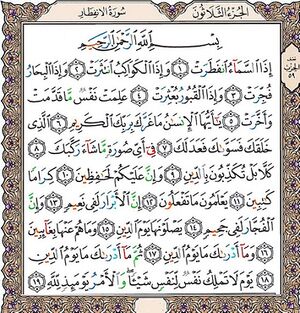 الجزء الثلاثون
سورة الانفطار
بِسْمِ اللَّهِ الرَّحْمَٰنِ الرَّحِيمِ
إِذَا السَّمَاءُ انفَطَرَتْ ١ وَإِذَا الْكَوَاكِبُ انتَثَرَتْ ٢ وَإِذَا الْبِحَارُ
فُجِّرَتْ ٣ وَإِذَا الْقُبُورُ بُعْثِرَتْ ٤ عَلِمَتْ نَفْسٌ مَّا قَدَّمَتْ
وَأَخَّرَتْ ٥ يَا أَيُّهَا الْإِنسَٰنُ مَا غَرَّكَ بِرَبِّكَ الْكَرِيمِ ٦ الَّذِي
خَلَقَكَ فَسَوَّىٰكَ فَعَدَلَكَ ٧ فِي أَيِّ صُورَةٍ مَّا شَاءَ رَكَّبَكَ ٨
كَلَّا بَلْ تُكَذِّبُونَ بِالدِّينِ ٩ وَإِنَّ عَلَيْكُمْ لَحَٰفِظِينَ ١٠ كِرَامًا
كَٰتِبِينَ ١١ يَعْلَمُونَ مَا تَفْعَلُونَ ١٢ إِنَّ الْأَبْرَارَ لَفِي نَعِيمٍ ١٣ وَإِنَّ
الْفُجَّارَ لَفِي جَحِيمٍ ١٤ يَصْلَوْنَهَا يَوْمَ الدِّينِ ١٥ وَمَا هُمْ عَنْهَا بِغَائِبِينَ
١٦ وَمَا أَدْرَىٰكَ مَا يَوْمُ الدِّينِ ١٧ ثُمَّ مَا أَدْرَىٰكَ مَا يَوْمُ الدِّينِ
١٨ يَوْمَ لَا تَمْلِكُ نَفْسٌ لِّنَفْسٍ شَيْئًا وَالْأَمْرُ يَوْمَئِذٍ لِّلَّهِ ١٩